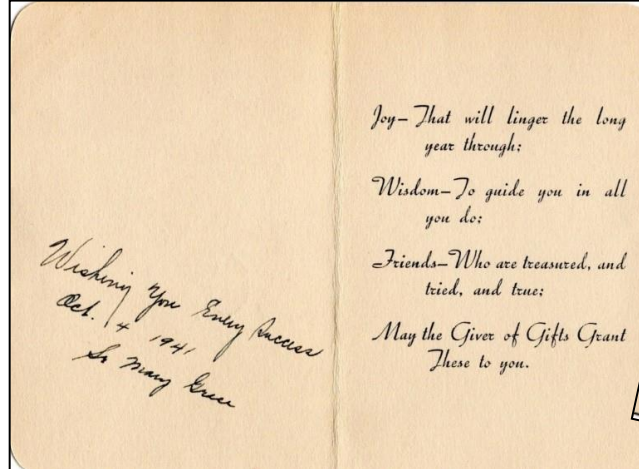 Wishing you Every Success
Oct. 4 1941
Sr Mary Grace
Joy—That will linger the long
year through;
Wisdom—To guide you in all
you do;
Friends—Who are treasured, and
tried, and true;
May the Giver of Gifts Grant
These to you.